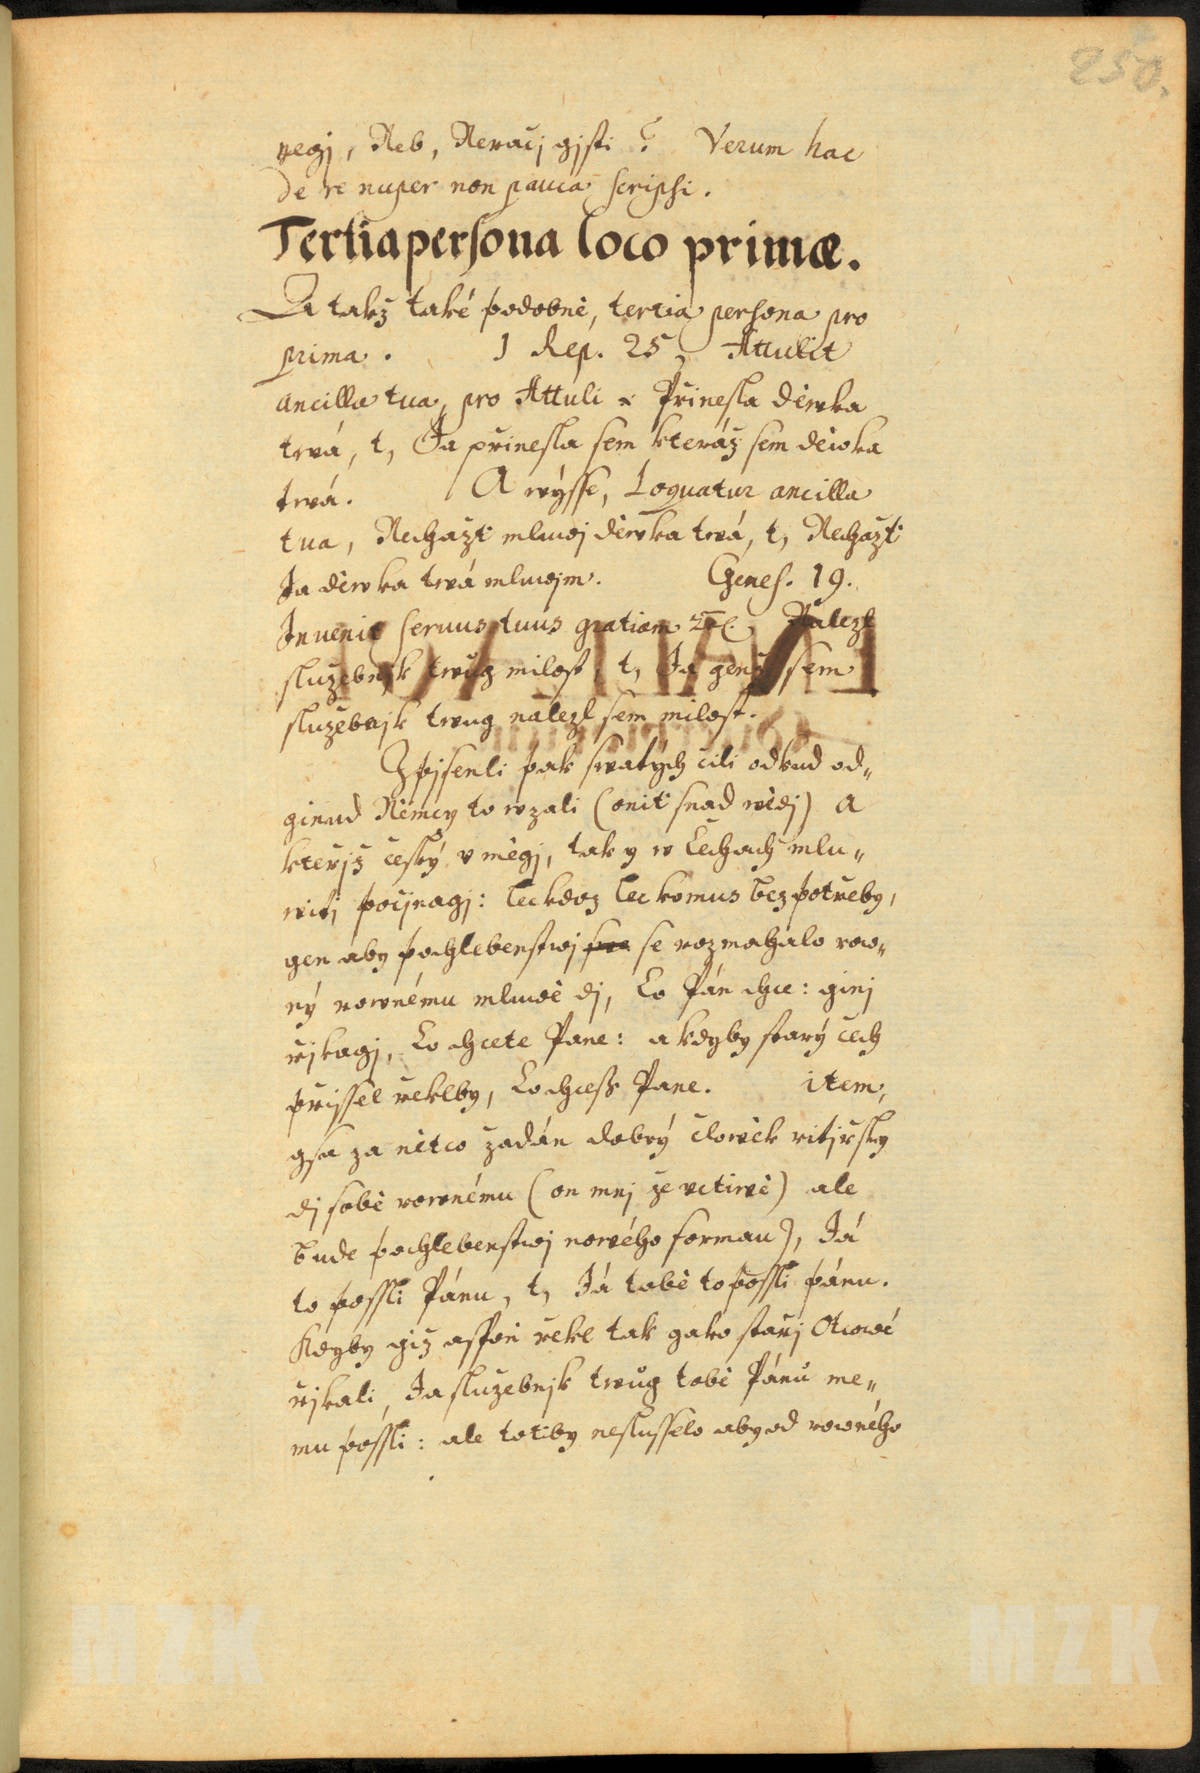 250.
negj, Neb, Neračj gjsti? Verum hac
de re nuper non pauca scripsi.
Tertia persona loco primæ.
A takž také podobně, tertia persona pro
prima. 1 Reg. 25, Attulit
ancilla tua, pro Attuli : Přinesla děwka
twá, t, Ja přinesla sem kteráž sem děwka
twá. A wýsse, Loquatur ancilla
tua, Nechažt mluwj děwka twá, t, Nechažt
Ja děwka twá mluwjm. Genes. 19.
Inuenit seruus tuus gratiam Nalezl
služebnjk twůg milost, t, Ja genž sem
služebnjk twůg nalezl sem milost.
Z pjsenli pak swatých čili odkud od„
ginud Němcy to wzali (onit snad wědj) A
kteřjž česky vměgj, tak y w Čechach mlu„
witj počjnagj: leckdoz leckomus bez potřeby,
gen aby pochlebenstwj se rozmahalo row„
ný rownému mluwě dj, Co Pán chce: ginj
řjkagj, Co chcete Pane: a kdyby starý čech
přissel řeklby, Co chcess Pane. item,
gsa za nětco žadán dobrý člowěk ritjřsky
dj sobě rownému (on mnj že vctiwě) ale
bude pochlebenstwj nowého formau), Já
to possli Pánu, t, Já tobě to possli pánu.
Kdyby giž aspoň řekl tak gako stařj Otcowé
řjkali, Ja služebnjk twůg tobě Pánu me„
mu possli: ale totby neslusselo aby od rowného
MZK
MZK